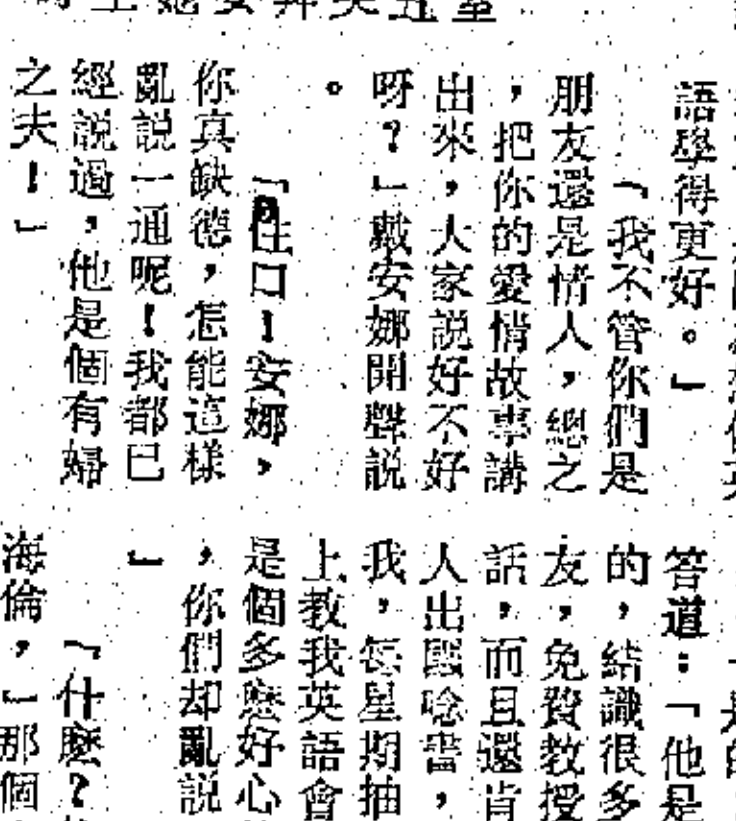 語學得更好。」
「我不管你們是
朋友還是情人，總之
，把你的愛情故事講
出來，大家說好不好
呀？」戴安娜開聲說
。
「住口！安娜，
你真缺德，怎能這樣
亂說一通呢！我都已
經說過，他是個有婦
之夫！」
答道：「他是
的，結識很多
友，免費教授
話，而且還肯
人出嚟唸書，
我，每星期抽
上教我英語會
是個多麼好心
，你們却亂說
」
「什麼？
海倫，」那個